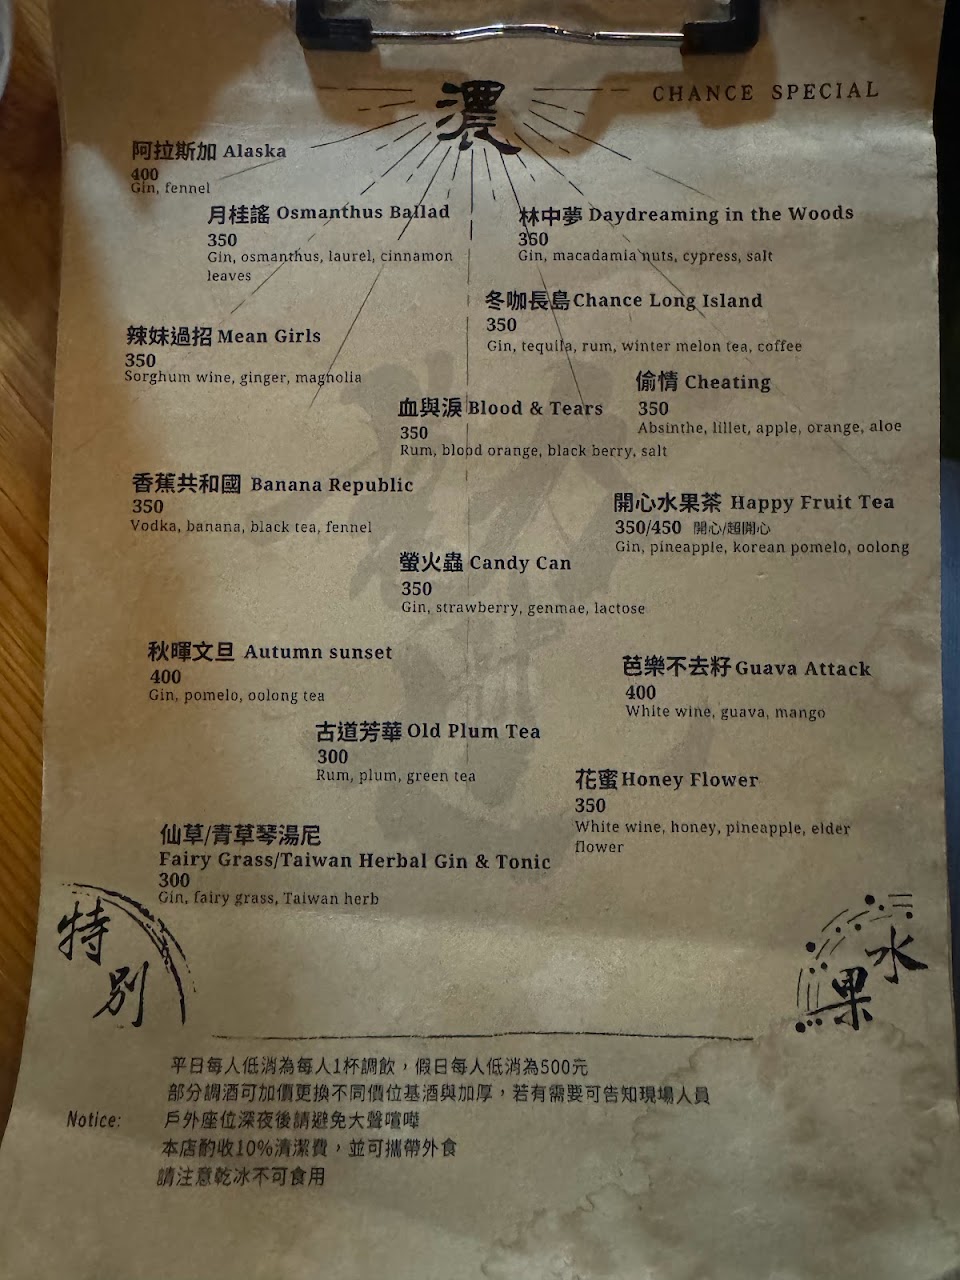 濃
CHANCE SPECIAL
阿拉斯加 Alaska
400
Gin, fennel
月桂謠 Osmanthus Ballad
350
Gin, osmanthus, laurel, cinnamon
leaves
林中夢 Daydreaming in the Woods
350
Gin, macadamia nuts, cypress, salt
冬咖長島 Chance Long Island
350
Gin, tequila, rum, winter melon tea, coffee
辣妹過招 Mean Girls
350
Sorghum wine, ginger, magnolia
偷情 Cheating
350
Absinthe, lillet, apple, orange, aloe
血與淚 Blood & Tears
350
Rum, blood orange, black berry, salt
香蕉共和國 Banana Republic
350
Vodka, banana, black tea, fennel
開心水果茶 Happy Fruit Tea
350/450 開心/超開心
Gin, pineapple, korean pomelo, oolong
螢火蟲 Candy Can
350
Gin, strawberry, genmae, lactose
秋暉文旦 Autumn sunset
400
Gin, pomelo, oolong tea
芭樂不去籽 Guava Attack
400
White wine, guava, mango
古道芳華 Old Plum Tea
300
Rum, plum, green tea
花蜜 Honey Flower
350
White wine, honey, pineapple, elder
flower
仙草/青草琴湯尼
Fairy Grass/Taiwan Herbal Gin & Tonic
300
Gin, fairy grass, Taiwan herb
特別
水果
平日每人低消為每人1杯調飲，假日每人低消為500元
部分調酒可加價更換不同價位基酒與加厚，若有需要可告知現場人員
Notice: 戶外座位深夜後請避免大聲喧嘩
本店酌收10%清潔費，並可攜帶外食
請注意乾冰不可食用